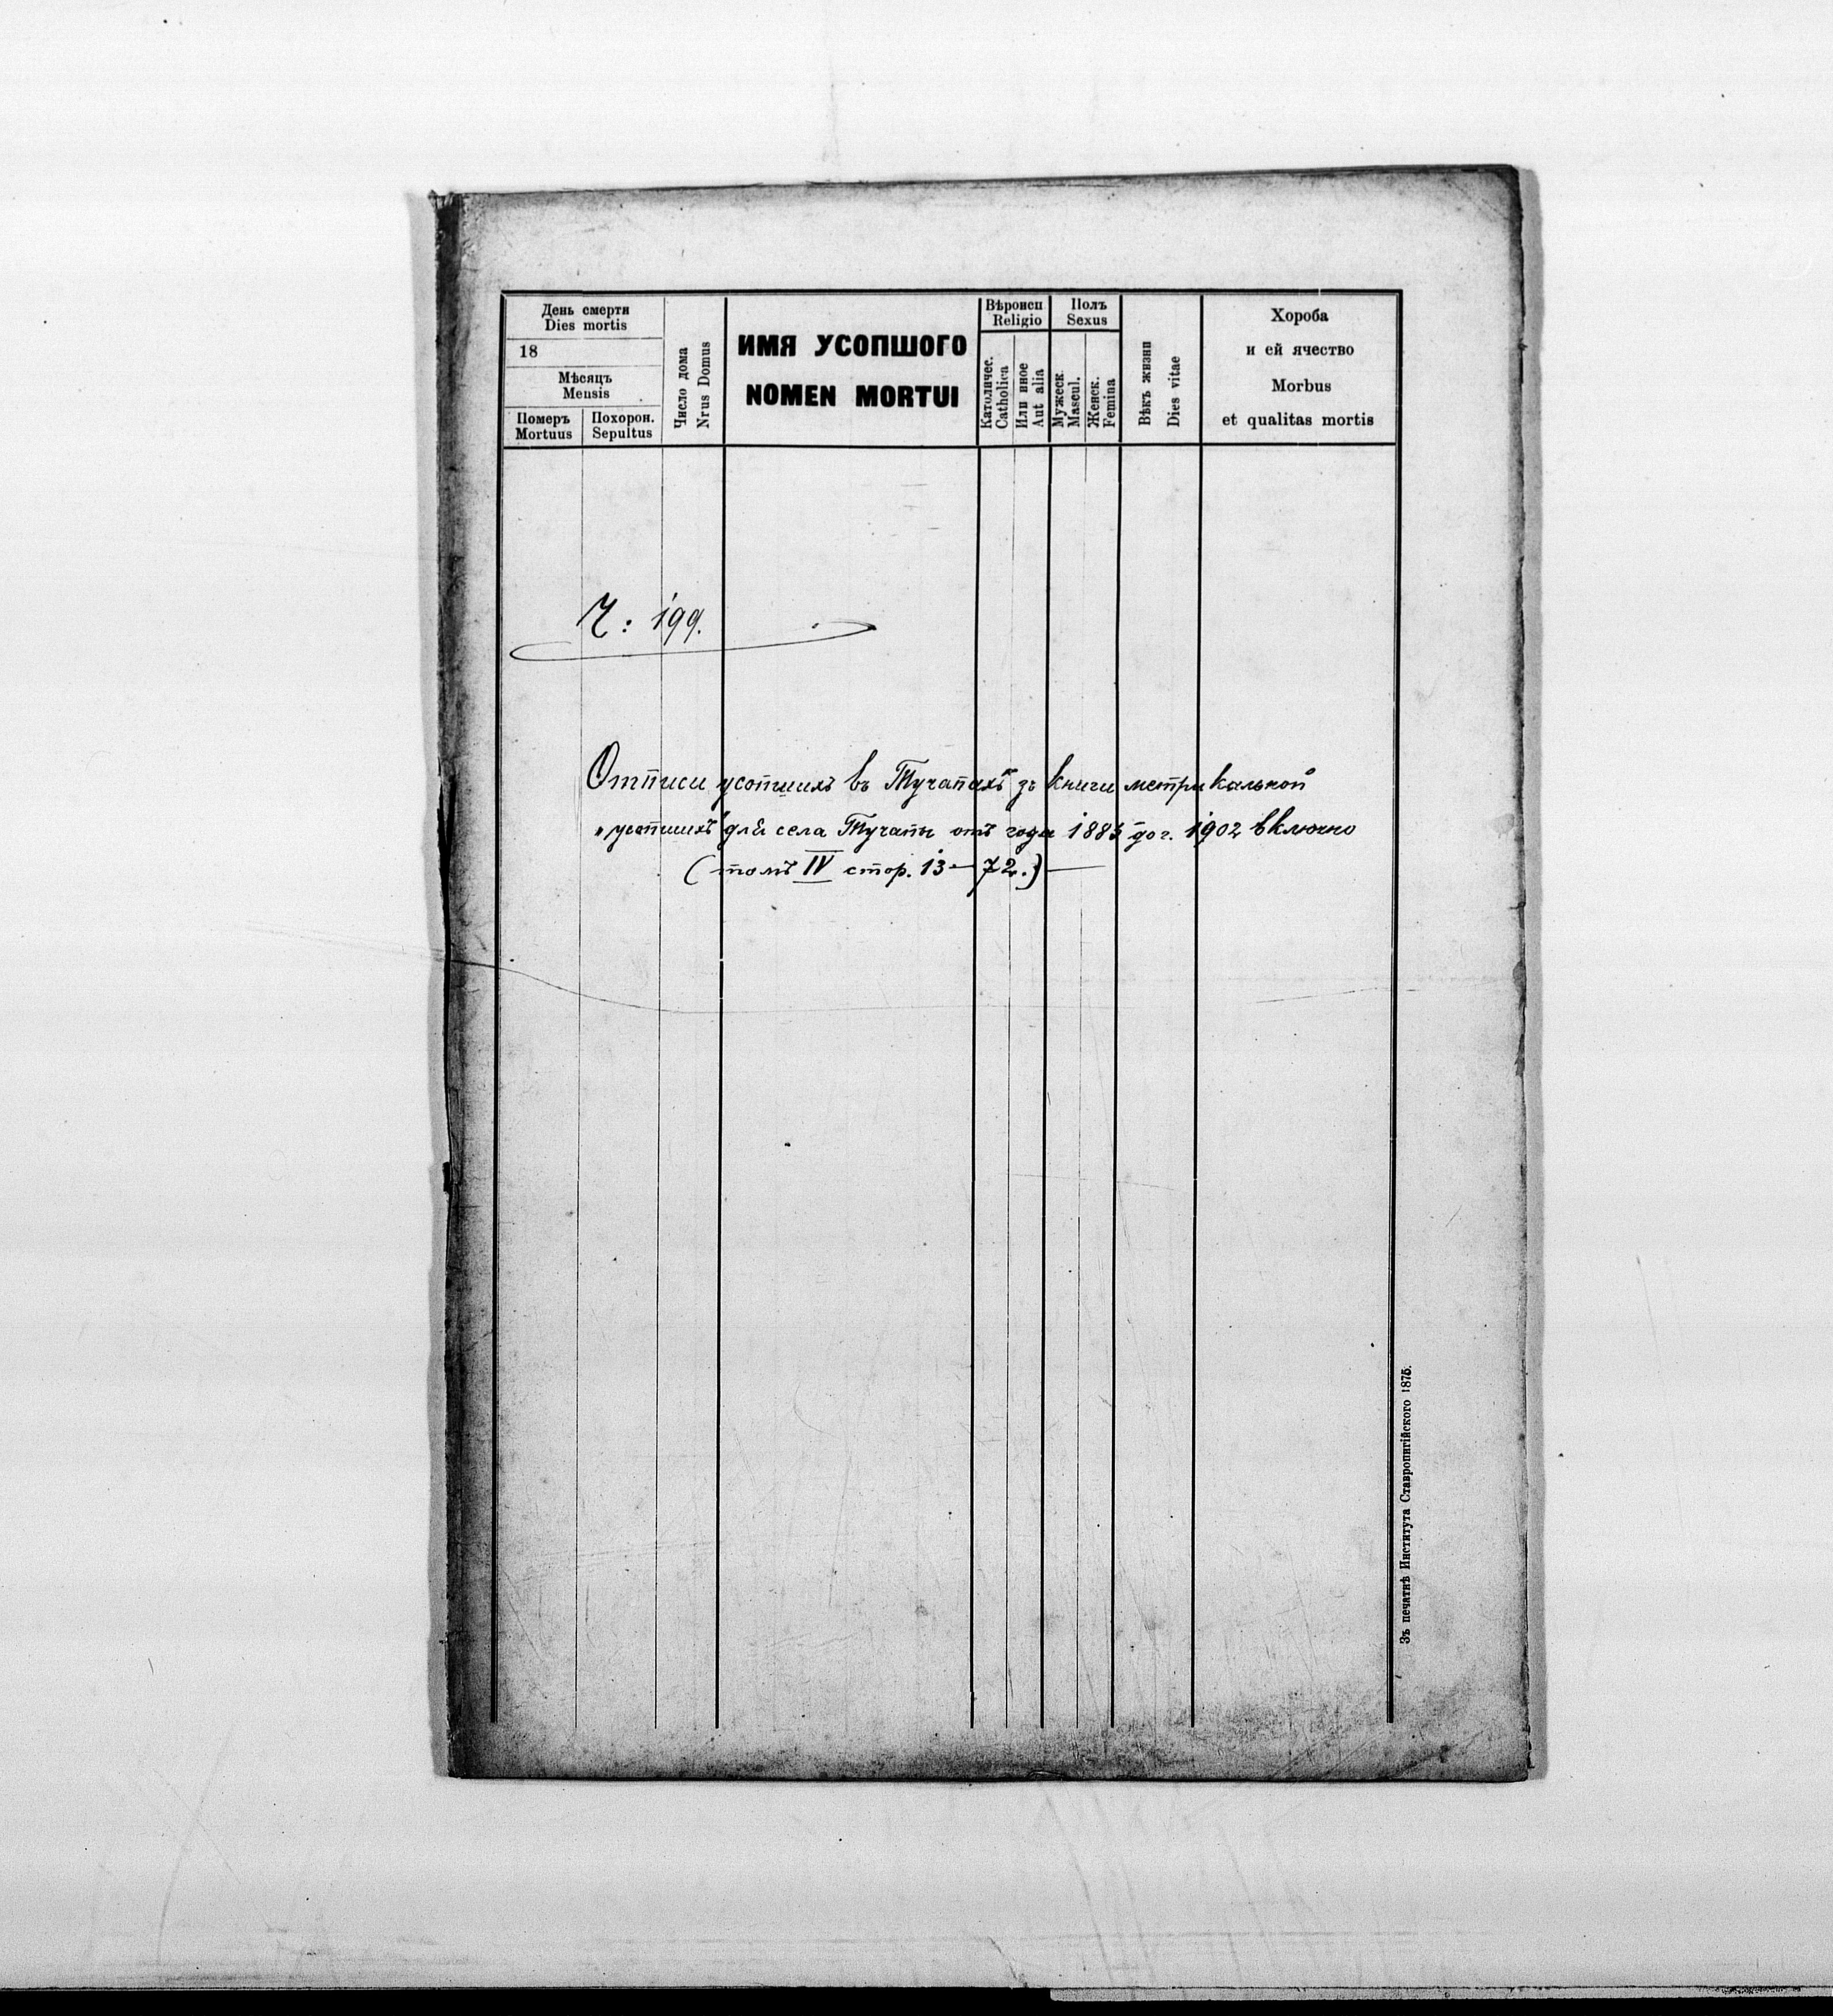 День смерти
Dies mortis
18
Мѣсяцъ
Mensis
Померъ
Mortuus
Похорон.
Sepultus
Число дома
Nrus Domus
ИМЯ УСОПШОГО
NOMEN MORTUI
Вѣроисп
Religio
Католичес.
Catholica
Или иное
Aut alia
Полъ
Sexus
Мужеск
Mascul.
Женск.
Femina
Вѣкъ жизни
Dies vitae
Хороба
и ей ячество
Morbus
et qualitas mortis
Ч: 199.
Отписи усопшихъ въ Тучапахъ зъ книги метрикальной
"усопшихъ" для села Тучапы отъ года 1883 до г. 1902 включно
(томъ IV стор. 13 — 72.) —
Зъ печатнѣ Института Ставропигійского 1875.